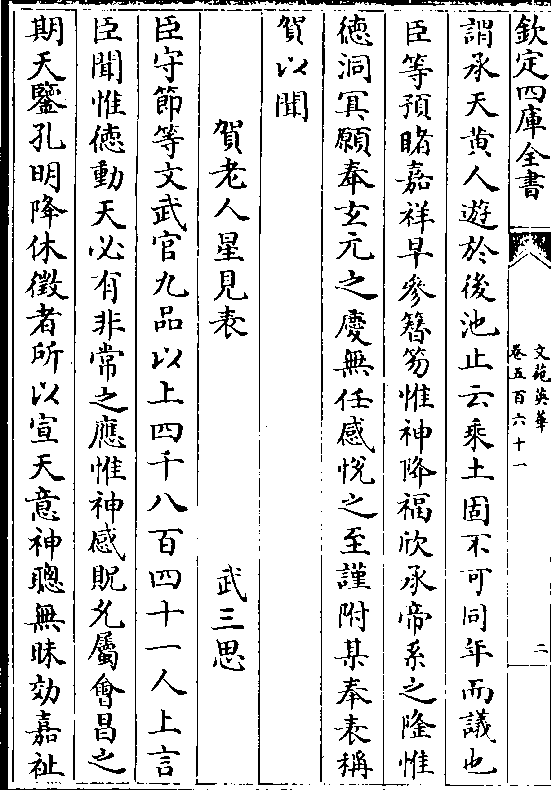 欽定四庫全書
文苑英華
卷五百六十一
二
謂承天黄人遊於後池止云乘土固不可同年而議也
臣等預睹嘉祥早參簪笏惟神降福欣承帝系之隆惟
徳洞冥願奉玄元之慶無任感悅之至謹附某奉表稱
賀以聞
賀老人星見表 武三思
臣守節等文武官九品以上四千八百四十一人上言
臣聞惟徳動天必有非常之應惟神感貺允屬會昌之
期天鑒孔明降休徵者所以宣天意神聰無昧効嘉祉